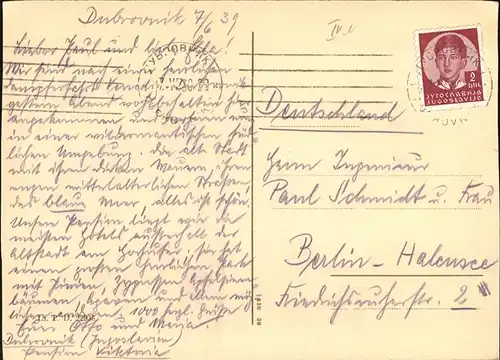 Dubrovnik 7/6 39
Lieber Paul und liebe
Wir sind nach einer herrlichen
Dampferfahrt
gestern Abend wohlbehalten hier
angekommen und
in einer wildromantischen süd-
lichen Umgebung. Die alte Stadt
mit ihren dicken Mauern, ihren
engen mittelalterlichen Straßen,
das blaue Meer, alles ist schön.
Unsere Pension liegt wie die
meisten Hotels außerhalb der
Altstadt am
einen großen herrlichen Park
mit Pinien, Zypressen, Apfelsinen-
bäumen, Agaven und
1000 herzl. Grüße
Eure Otto und Maria
Dubrovnik (Jugoslavien)
Pension Viktoria
2
DIN.
ЈУГОСЛАВИЈА
JUGOSLAVIJA
Deutschland
Herrn Ingenieur
Paul Schmidt u. Frau
Berlin-Halensee
Friedrichsruherstr. 2